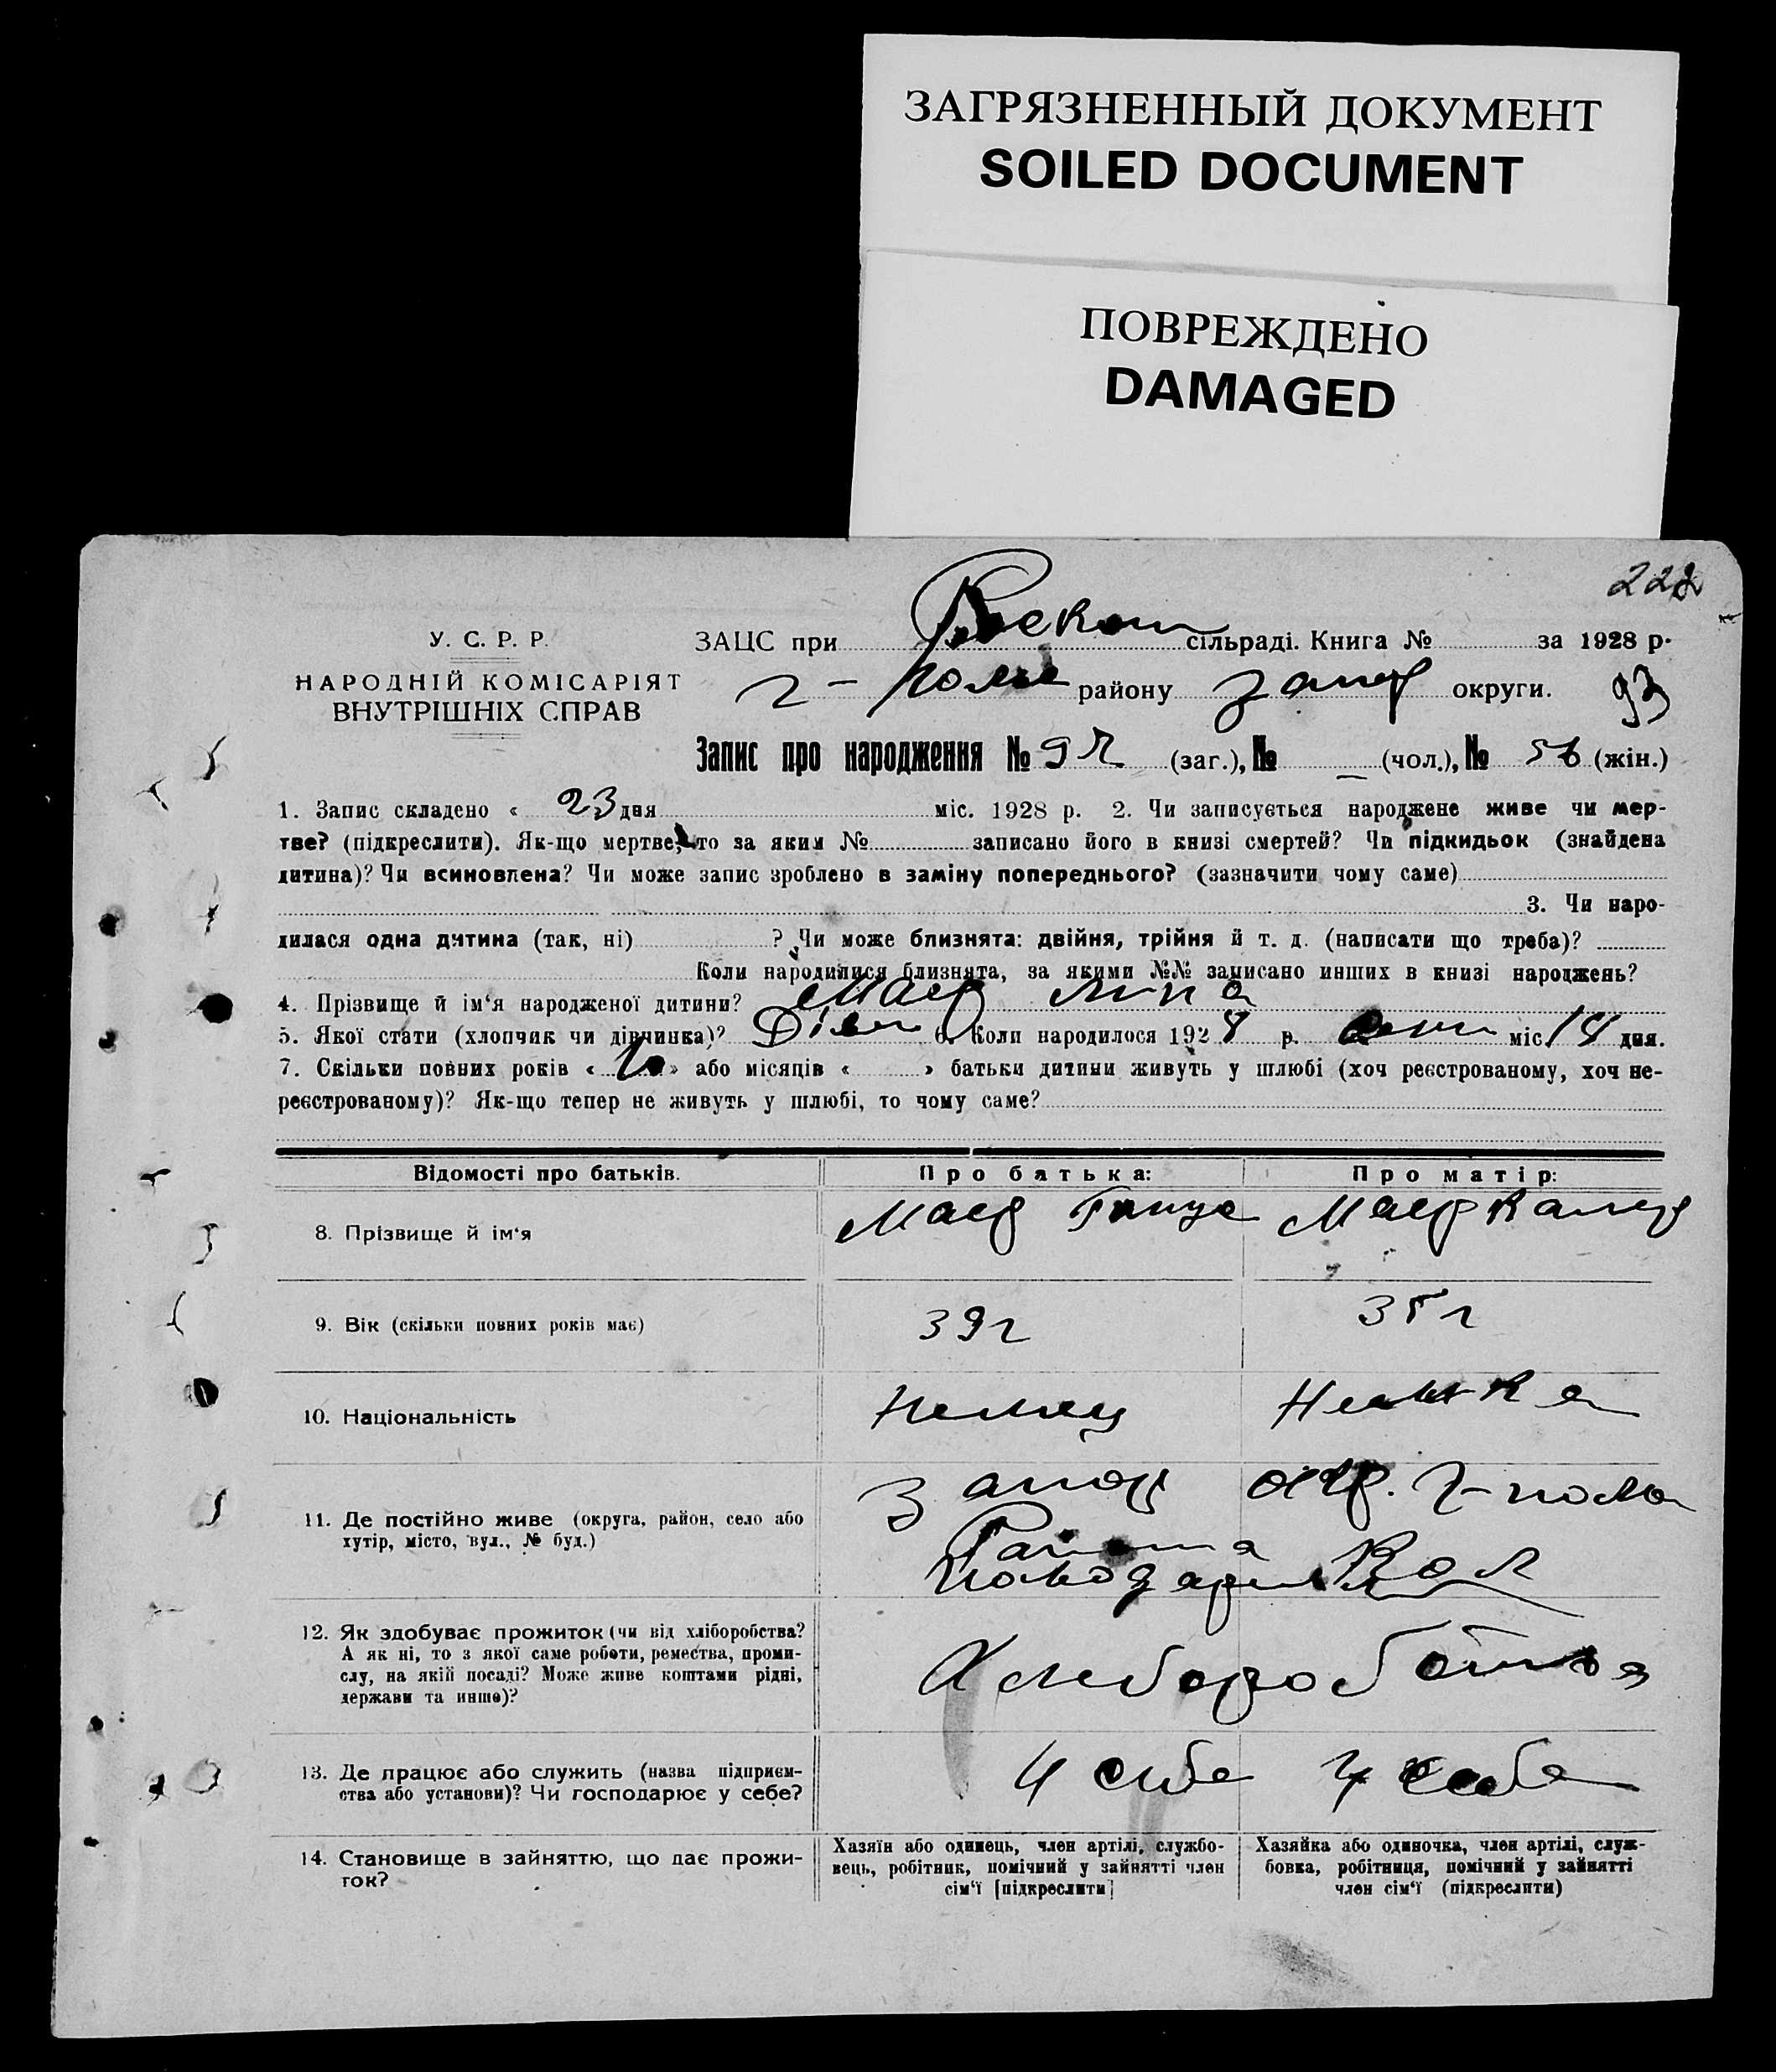 ЗАГРЯЗНЕННЫЙ ДОКУМЕНТ
SOILED DOCUMENT
ПОВРЕЖДЕНО
DAMAGED
222
У. С. Р. Р.
НАРОДНІЙ КОМІСАРІЯТ
ВНУТРІШНІХ СПРАВ
ЗАЦС при сільраді. Книга № за 1928 р.
Г-поле району Запор округи. 93
Запис про народження № 92 (заг.), № — (чол.), № 56 (жін.)
1. Запис складено « 23 дня міс. 1928 р. 2. Чи записується народжене живе чи мер-
тве? (підкреслити). Як-що мертве, то за яким № записано його в книзі смертей? Чи підкидьок (знайдена
дитина)? Чи всиновлена? Чи може запис зроблено в заміну попереднього? (зазначити чому саме)
3. Чи наро-
дилася одна дитина (так, ні) ? Чи може близнята: двійня, трійня й т. д. (написати що треба)?
Коли народилися близнята, за якими №№ записано инших в книзі народжень?
4. Прізвище й ім‘я народженої дитини? Маер
5. Якої стати (хлопчик чи дівчинка)? Дівч 6. Коли народилося 1928 р. міс. 18 дня.
7. Скільки повних років « » або місяців « » батьки дитини живуть у шлюбі (хоч реєстрованому, хоч не-
реєстрованому)? Як-що тепер не живуть у шлюбі, то чому саме?
Відомості про батьків. Про батька: Про матір:
8. Прізвище й ім‘я Маер Маер
9. Вік (скільки повних років має) 39 г 35 г
10. Національність Немец Немка
11. Де постійно живе (округа, район, село або
хутір, місто, вул., № буд.) Запор окр. Г-поль
Района
12. Як здобуває прожиток (чи від хліборобства?
А як ні, то з якої саме роботи, ремества, проми-
слу, на якій посаді? Може живе коштами рідні,
держави та инше)?
13. Де працює або служить (назва підприєм-
ства або установи)? Чи господарює у себе? У себе У себе
14. Становище в зайняттю, що дає прожи-
ток?
Хазяїн або одинець, член артілі, службо-
вець, робітник, помічний у зайнятті член
сім‘ї [підкреслити]
Хазяйка або одиночка, член артілі, служ-
бовка, робітниця, помічний у зайнятті
член сім‘ї (підкреслити)